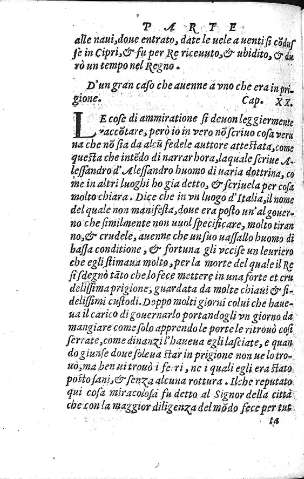 PARTE
alle naui, doue entrato, date le uele a uenti si cõdus
se in Cipri, & fu per Re riceuuto, & ubidito, & du
rò un tempo nel Regno.
D'un gran caso che auenne a vno che era in pri
gione. Cap. XX.
LE cose di ammiratione si deuon leggiermente
raccõtare, però io in vero nõ scriuo cosa veru
na che nõ sia da alcũ fedele auttore attestata, come
questa che intẽdo di narrar hora, laquale scriue A-
lessandro d'Alessandro huomo di uaria dottrina, co
me in altri luoghi ho gia detto, & scriuela per cosa
molto chiara. Dice che in vn luogo d'Italia, il nome
del quale non manifesta, doue era posto un'al gouer-
no che similmente non uuol specificare, molto tiran
no, & crudele, auenne che un suo uassallo huomo di
bassa conditione, & fortuna gli vccise un leuriero
che egli stimaua molto, per la morte del quale il Re
si sdegnò tãto che lo fece mettere in una forte et cru
delissima prigione, guardata da molte chiaui & fi-
delissimi custodi. Doppo molti giorni colui che haue-
ua il carico di gouernarlo portandogli vn giorno da
mangiare come solo aprendo le porte le ritrouò cosi
serrate, come dinanzi l'haueua egli lasciate, e quan
do giunse doue soleua star in prigione non ue lo tro-
uo, ma ben ui trouò i ferri, ne i quali egli era stato
posto sani, & senza alcuna rottura. Ilche reputato
qui cosa miracolosa fu detto al Signor della città
che con la maggior diligenza del mõdo fece per tut
ta